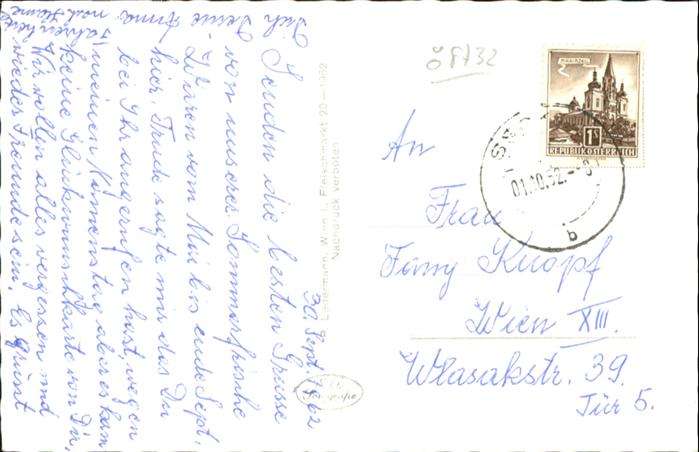 30. Sept. 1962
Senden die besten Grüsse
von unserer Sommerfrische
Waren vom Mai bis ende Sept.
hier. Trude sagte mir das Du
bei Ihr angerufen hast, wegen
meinen Namenstag aber es kam
keine Glückwunschkarte von Dir,
Wir wollen alles vergessen und
wieder Freunde sein, Es grüsst
Dich Deine Anna
fahren heute nach Hause
Ledermann, Wien I., Fleischmarkt 20 — 1962
Nachdruck verboten
ö 8732
MARIAZELL
1S
REPUBLIK ÖSTERREICH
01.10.62
b
An
Frau
Fanny Knopf
Wien XIII.
Wlasakstr. 39.
Tür 5.